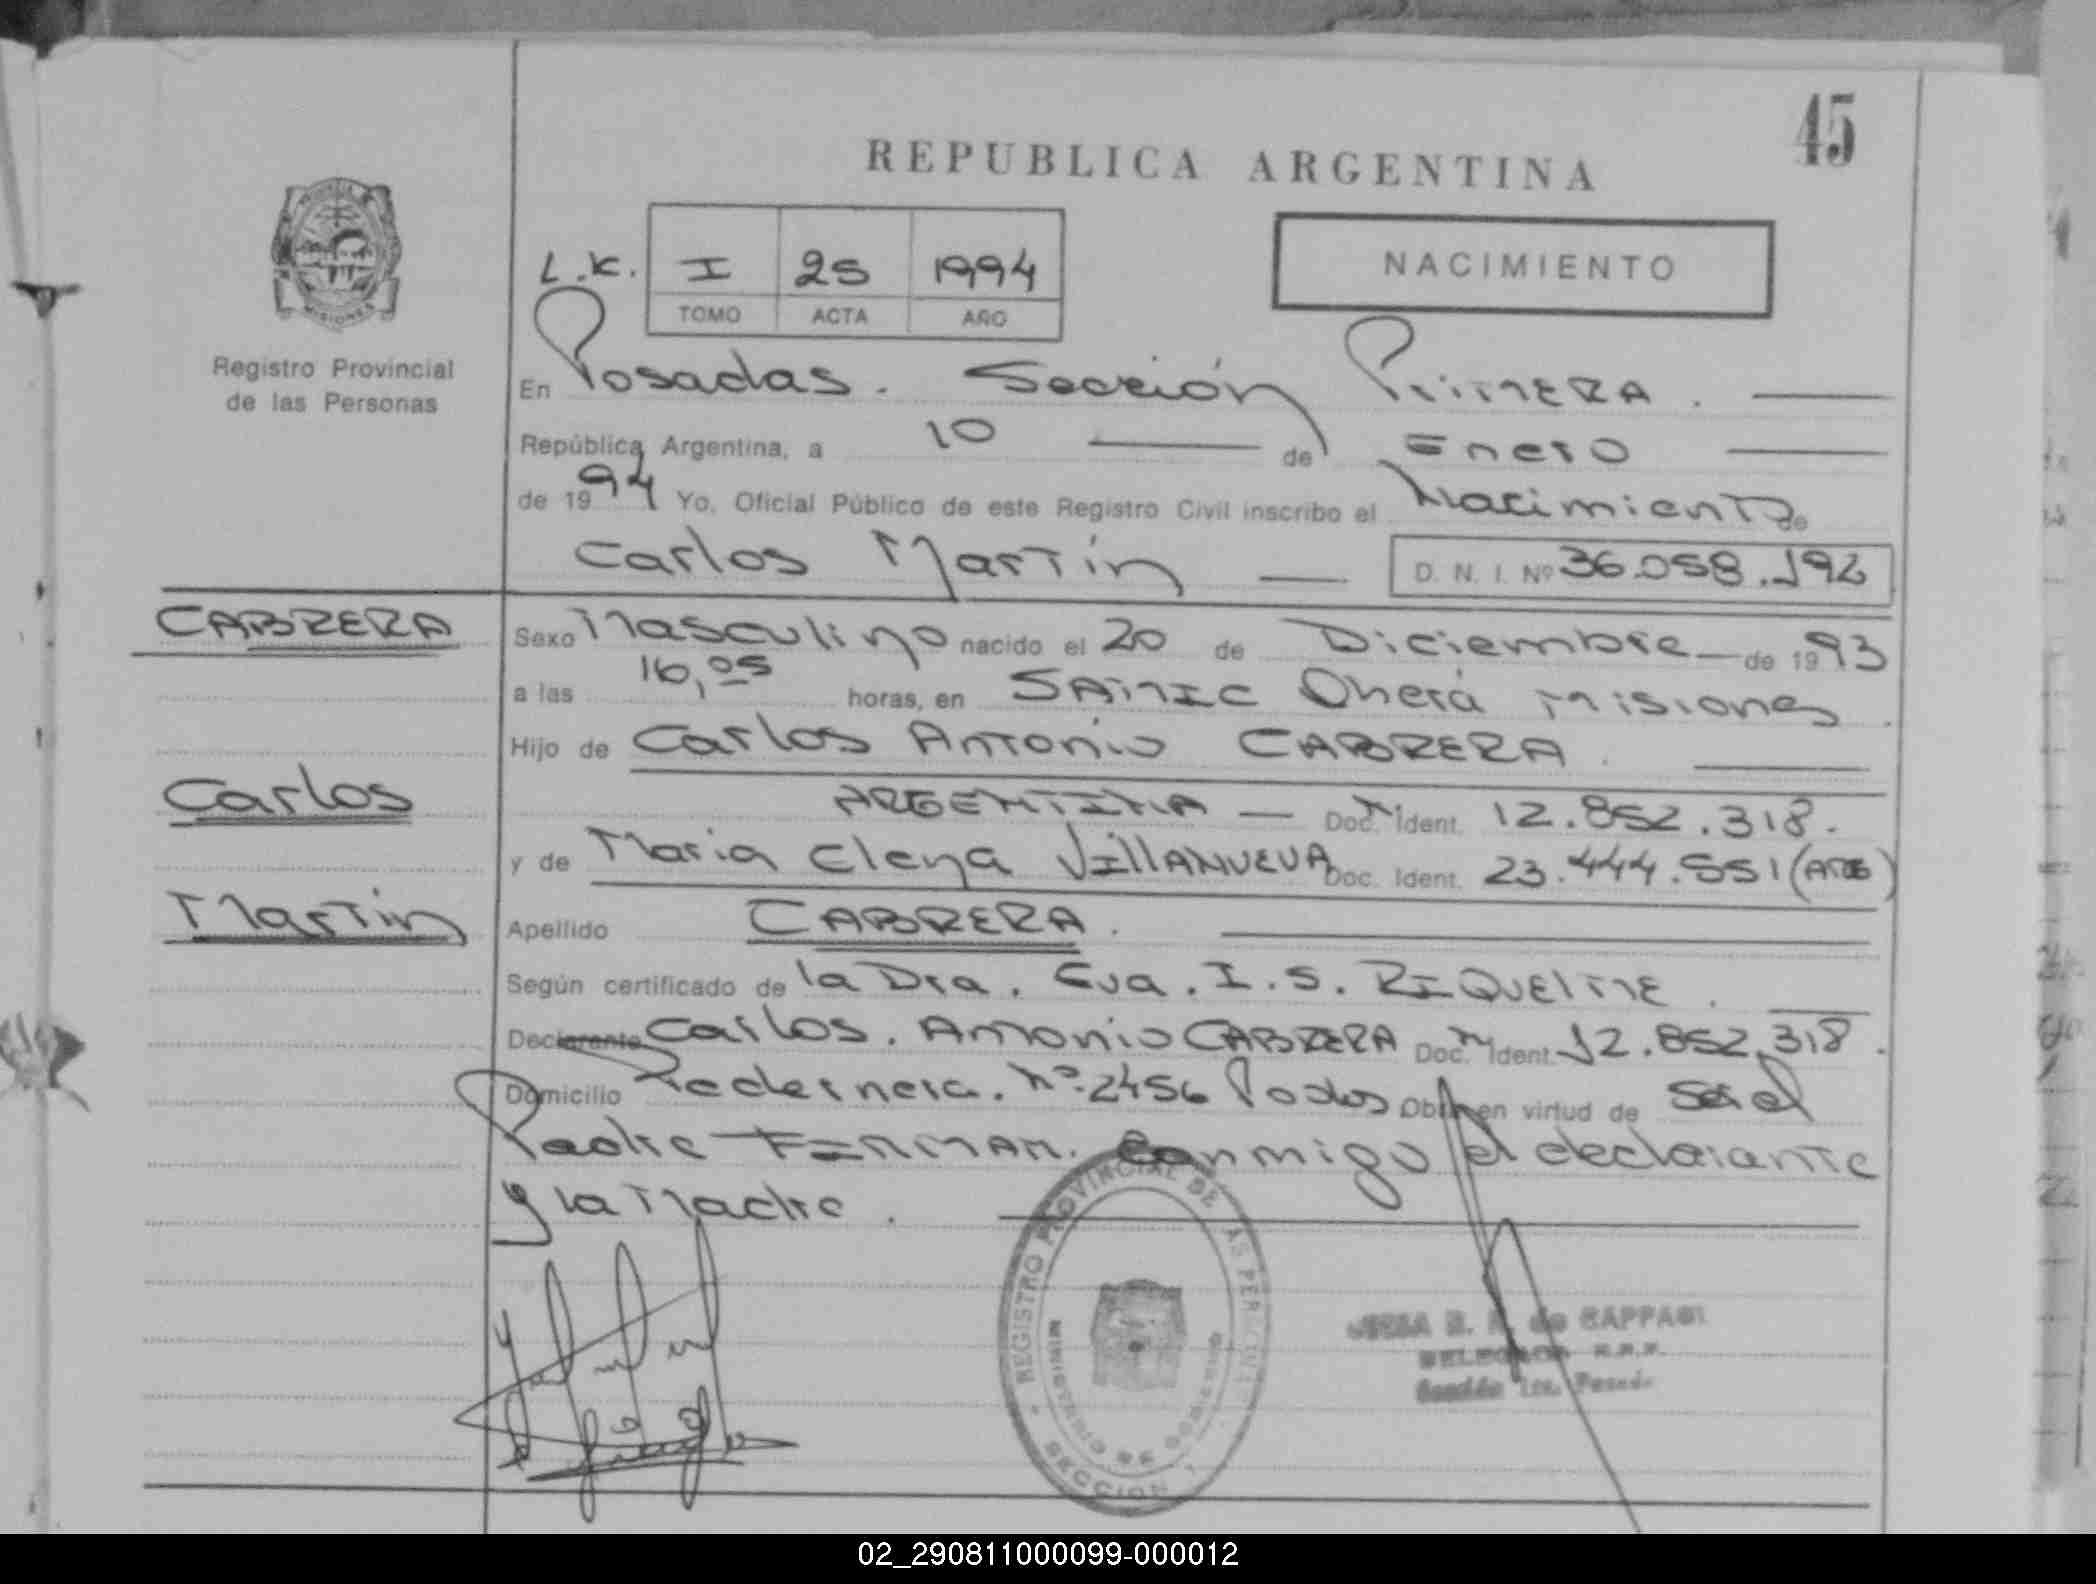 45
REPUBLICA ARGENTINA
L.K. I 25 1994
TOMO ACTA AÑO
NACIMIENTO
MISIONES
Registro Provincial
de las Personas
En Posadas. Sección Primera.
República Argentina, a 10 de Enero
de 1994 Yo, Oficial Público de este Registro Civil inscribo el Nacimiento de
Carlos Martín D. N. I. Nº 36.058.192
CABRERA
Sexo Masculino nacido el 20 de Diciembre de 1993
a las 16,05 horas, en SAMIC Oberá Misiones
Hijo de Carlos Antonio CABRERA.
Carlos
ARGENTINA Doc. Ident. 12.852.318.
y de Maria Elena VillANUEVA Doc. Ident. 23.444.551 (ARG)
Martín
Apellido CABRERA.
Según certificado de la Dra. Eva. I. S. RIQUElME.
Declarante Carlos. Antonio CABRERA Doc. Ident. 12.852.318.
Domicilio Pedernera. Nº 2456 Posdas Obra en virtud de ser el
Padre FIRMAN. Conmigo el declarante
y la Madre.
REGISTRO PROVINCIAL DE LAS PERSONAS
MINISTERIO DE GOBIERNO
SECCION 1
de CAPPAGLI
DELEGADA R.P.P.
Sección 1ra. Posadas
02_290811000099-000012